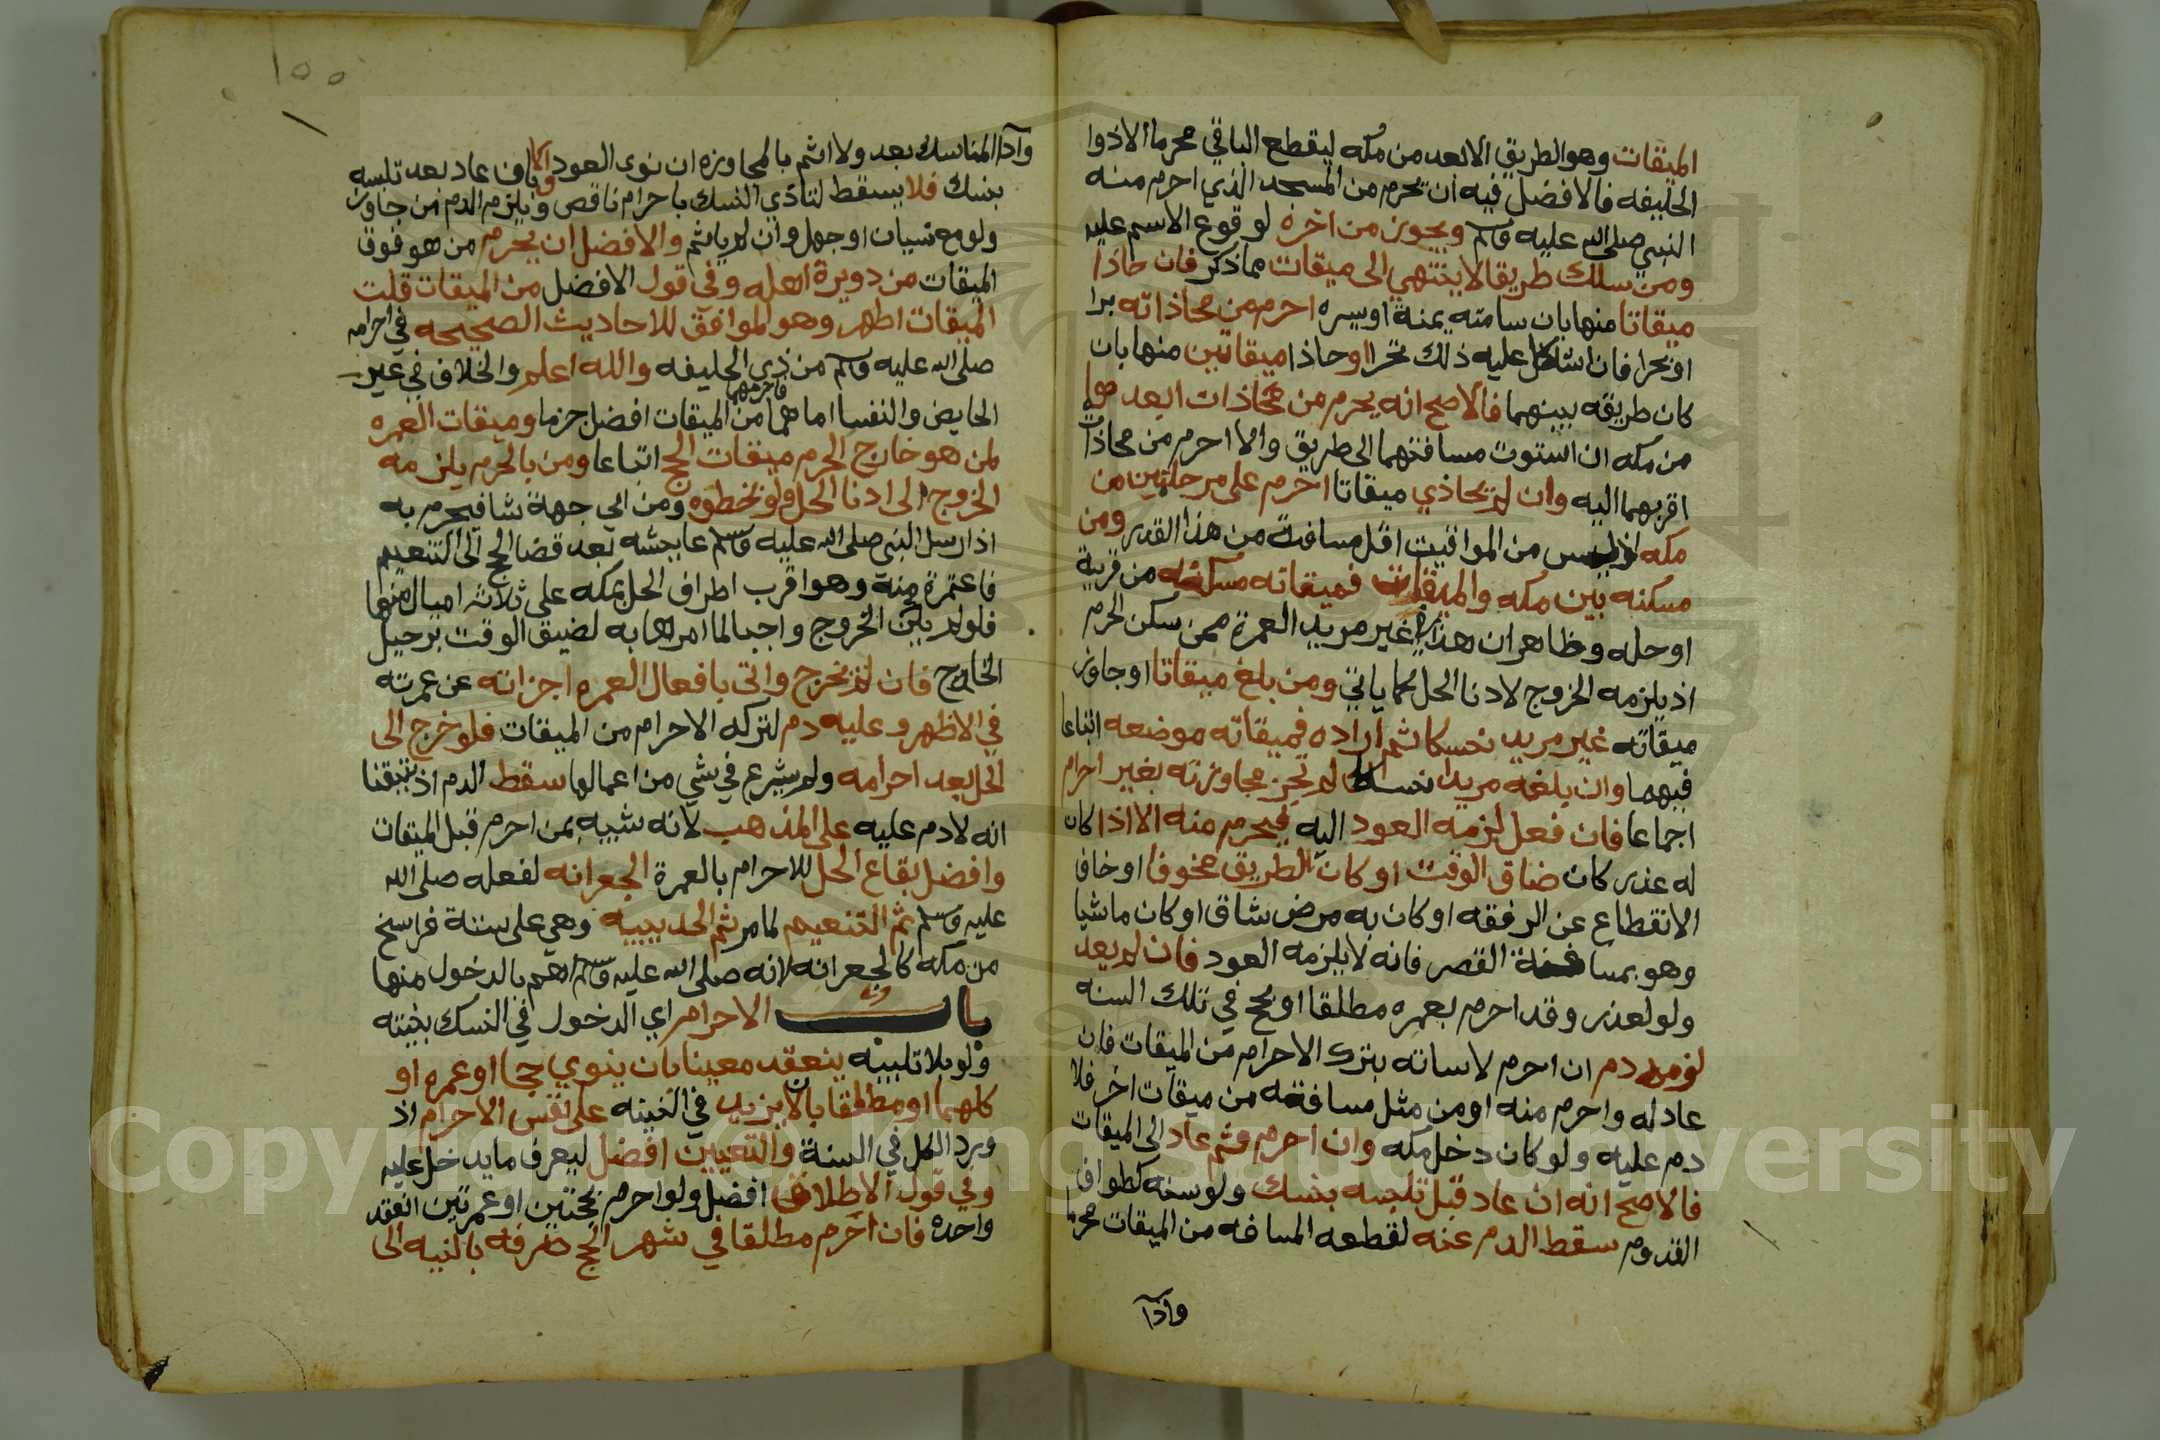 الميقات وهو الطريق الابعد من مكه ليقطع الباقي محرما الا ذوا
الحليفه فالافضل فيه ان يحرم من المسجد الذي احرم منه
النبي صلى الله عليه وسلم ويجوز من اخره لوقوع الاسم عليه
ومن سلك طريقا لا ينتهي الى ميقات مما ذكر فان حاذا
ميقاتا منها بان سامته يمنة او يسره احرم من محاذاته برا
او بحرا فان اشكل عليه ذلك تحرا او حاذا ميقاتين منها بان
كان طريقه بينهما فالاصح انه يحرم من محاذات ابعدهما
من مكه ان استوت مسافتهما الى طريق والا احرم من محاذات
اقربهما اليه وان لم يحاذي ميقاتا احرم على مرحلتين من
مكه اذ ليس من المواقيت اقل مسافة من هذا القدر ومن
مسكنه بين مكه والميقات فميقاته مسكنه من قرية
او حله وظاهر ان هذا في غير مريد العمرة ممن سكن الحرم
اذ يلزمه الخروج لادنا الحل كما ياتي ومن بلغ ميقاتا او جاوز
ميقاته غير مريد نسكا ثم اراده فميقاته موضعه اتباعا
فيهما وان بلغه مريدا نسكا لم تجز مجاوزته بغير احرام
اجماعا فان فعل لزمه العود اليه فيحرم منه الا اذا كان
له عذر كان ضاق الوقت او كان الطريق مخوفا او خاف
الانقطاع عن الرفقه او كان به مرض شاق او كان ماشيا
وهو بمسافة القصر فانه لا يلزمه العود فان لم يعد
ولو لعذر وقد احرم بعمره مطلقا او بحج في تلك السنه
لزمه دم ان احرم لاساته بترك الاحرام من الميقات فان
عاد له واحرم منه او من مثل مسافته من ميقات اخر فلا
دم عليه ولو كان دخل مكه وان احرم ثم عاد الى الميقات
فالاصح انه ان عاد قبل تلبسه بنسك ولو سنه كطواف
القدوم سقط الدم عنه لقطعه المسافه من الميقات محرما
واذا
١٥٥
واذا المناسك بعد ولا اثم بالمجاوزه ان نوى العود والا بان عاد بعد تلبسه
بنسك فلا يسقط لتاذي النسك باحرام ناقص ويلزم الدم من جاوز
ولو مع نسيان او جهل وان لم ياثم والافضل ان يحرم من هو فوق
الميقات من دويرة اهله وفي قول الافضل من الميقات قلت
الميقات اظهر وهو الموافق للاحاديث الصحيحه في احرامه
صلى الله عليه وسلم من ذي الحليفه والله اعلم والخلاف في غير
الحايض والنفسا اما هما فاحرامهما من الميقات افضل جزما وميقات العمره
لمن هو خارج الحرم ميقات الحج اتباعا ومن بالحرم يلزمه
الخروج الى ادنا الحل ولو بخطوه ومن اي جهة شا فيحرم به
اذ ارسل النبي صلى الله عليه وسلم عايشه بعد قضا الحج الى التنعيم
فاعتمرة منه وهو اقرب اطراف الحل بمكه على ثلاثه اميال منها
فلو لم يكن الخروج واجبا لما امرها به لضيق الوقت برحيل
الخارج فان لم يخرج واتى بافعال العمره اجزاته عن عمرته
في الاظهر وعليه دم لتركه الاحرام من الميقات فلو خرج الى
الحل بعد احرامه ولم يشرع في شي من اعمالها سقط الدم اذ تيقنا
انه لا دم عليه على المذهب لانه شبيه بمن احرم قبل الميقات
وافضل بقاع الحل للاحرام بالعمرة الجعرانه لفعله صلى الله
عليه وسلم ثم التنعيم لما مر ثم الحديبيه وهي على ستة فراسخ
من مكه كالجعرانه لانه صلى الله عليه وسلم اهم بالدخول منها
باب الاحرام اي الدخول في النسك بنيته
ولو بلا تلبيه ينعقد معينا بان ينوي حجا او عمره او
كلهما او مطلقا بان لا يزيد في النيه على نفس الاحرام اذ
ورد الكل في السنة والتعيين افضل ليعرف ما يدخل عليه
وفي قول الاطلاق افضل ولو احرم بحجتين او عمرتين انعقد
واحده فان احرم مطلقا في شهر الحج صرفه بالنيه الى
Copyright © King Saud University